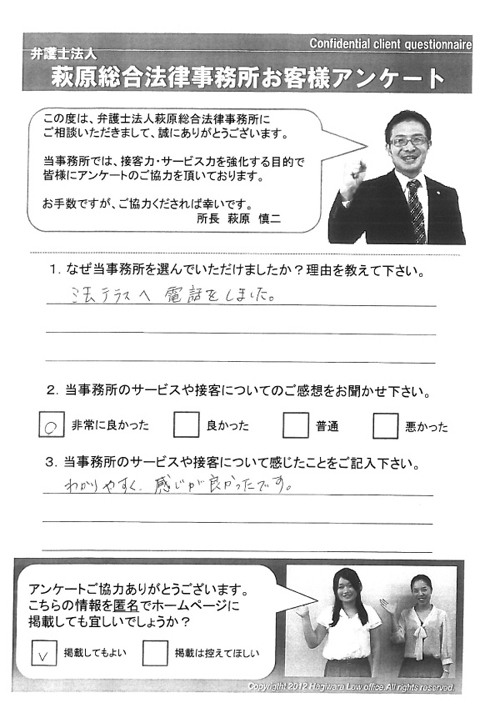 Confidential client questionnaire
弁護士法人
萩原総合法律事務所お客様アンケート
この度は、弁護士法人萩原総合法律事務所に
ご相談いただきまして、誠にありがとうございます。
当事務所では、接客力・サービス力を強化する目的で
皆様にアンケートのご協力を頂いております。
お手数ですが、ご協力くだされば幸いです。
所長 萩原 慎二
1. なぜ当事務所を選んでいただけましたか？理由を教えて下さい。
法テラスへ 電話をしました。
2. 当事務所のサービスや接客についてのご感想をお聞かせ下さい。
○ 非常に良かった 良かった 普通 悪かった
3. 当事務所のサービスや接客について感じたことをご記入下さい。
わかりやすく、感じが良かったです。
アンケートご協力ありがとうございます。
こちらの情報を匿名でホームページに
掲載しても宜しいでしょうか？
✓ 掲載してもよい 掲載は控えてほしい
Copyright 2012 Hagiwara Law office All rights reserved